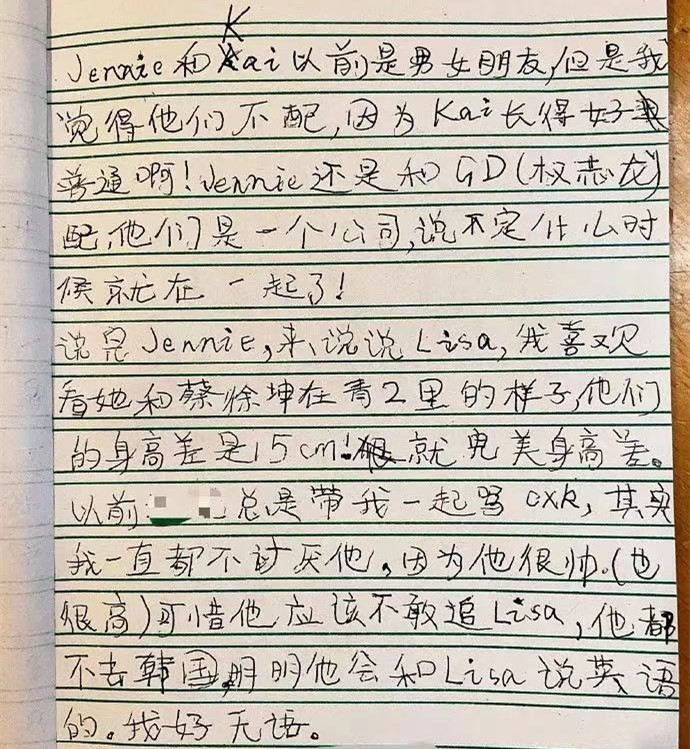 Jennie和Kai以前是男女朋友,但是我
觉得他们不配,因为Kai长得好
普通啊!Jennie还是和GD(权志龙)
配,他们是一个公司,说不定什么时
候就在一起了!
说完Jennie,来说说Lisa,我喜欢
看她和蔡徐坤在青2里的样子,他们
的身高差是15cm!就完美身高差。
以前 总是带我一起骂cxk,其实
我一直都不讨厌他,因为他很帅.(也
很高)可惜他应该不敢追Lisa,他都
不去韩国,明明他会和Lisa说英语
的。我好无语。